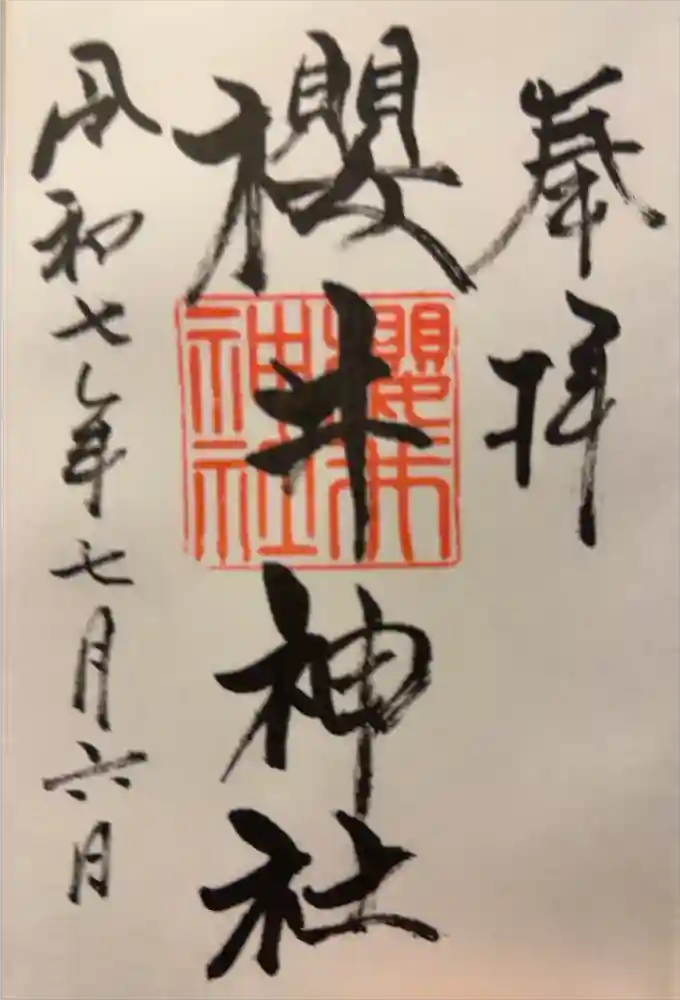 奉拝
櫻井神社
櫻井
神社
令和七年七月六日